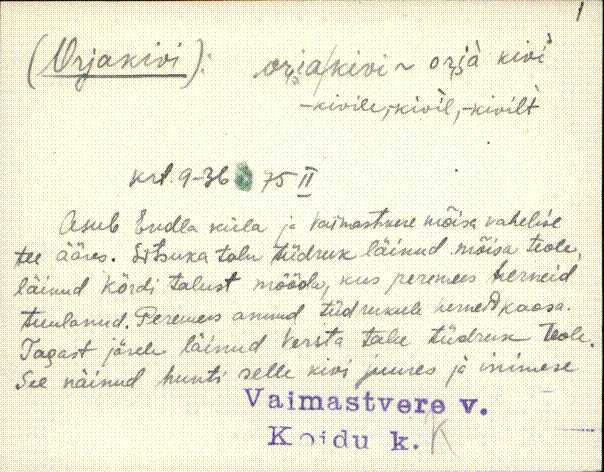 1
(Orjakivi): orja/kivi ~ orjà kivi
-kivile, -kivìl, -kivìlt
krt. 9-36 75 II
Asub Endla küla ja Vaimastvere mõisa vahelise
tee ääres. talu tüdruk läinud mõisa teole,
läinud Kõrdi talust mööda, kus peremees herneid
tuulanud. Peremees annud tüdrukule herneid kaasa.
Tagast järele läinud Versta talu tüdruk teole.
See näinud hunti selle kivi juures ja inimese
Vaimastvere v.
Koidu k. K